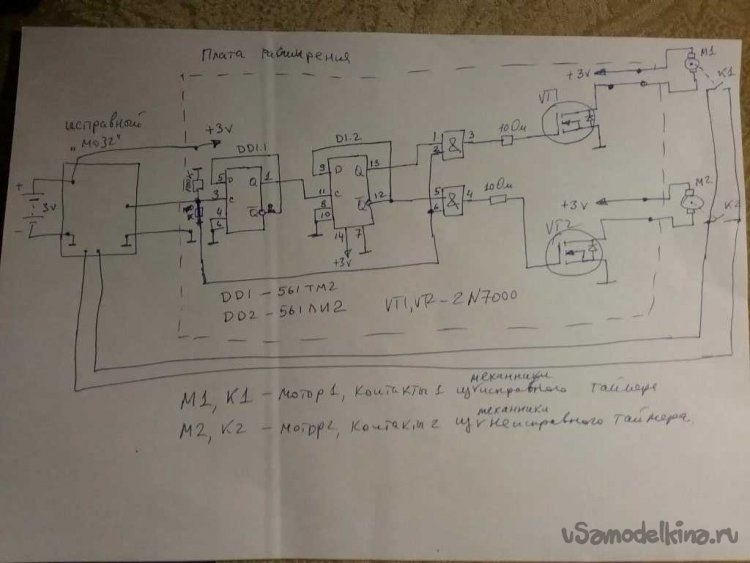 Плата расширения
исправный
"МОЗГ"
+3v
+3v
+3v
+3v
M1
K1
M2
K2
VT1
VT2
DD1.1
D1.2
5 D Q 1
3 C
4
6
Q 2
9 D Q 13
11 C
8
10
Q 12
14 7
1
2
& 3
5
6
& 4
10 Ом
10 Ом
+
3v
-
DD1 – 561 ТМ2
DD2 – 561 ЛИ2
VT1, VT2 – 2N7000
M1, K1 – мотор 1, контакты 1 из механики исправного таймера
M2, K2 – мотор 2, контакты 2 из механики неисправного таймера.
vSamodelkina.ru